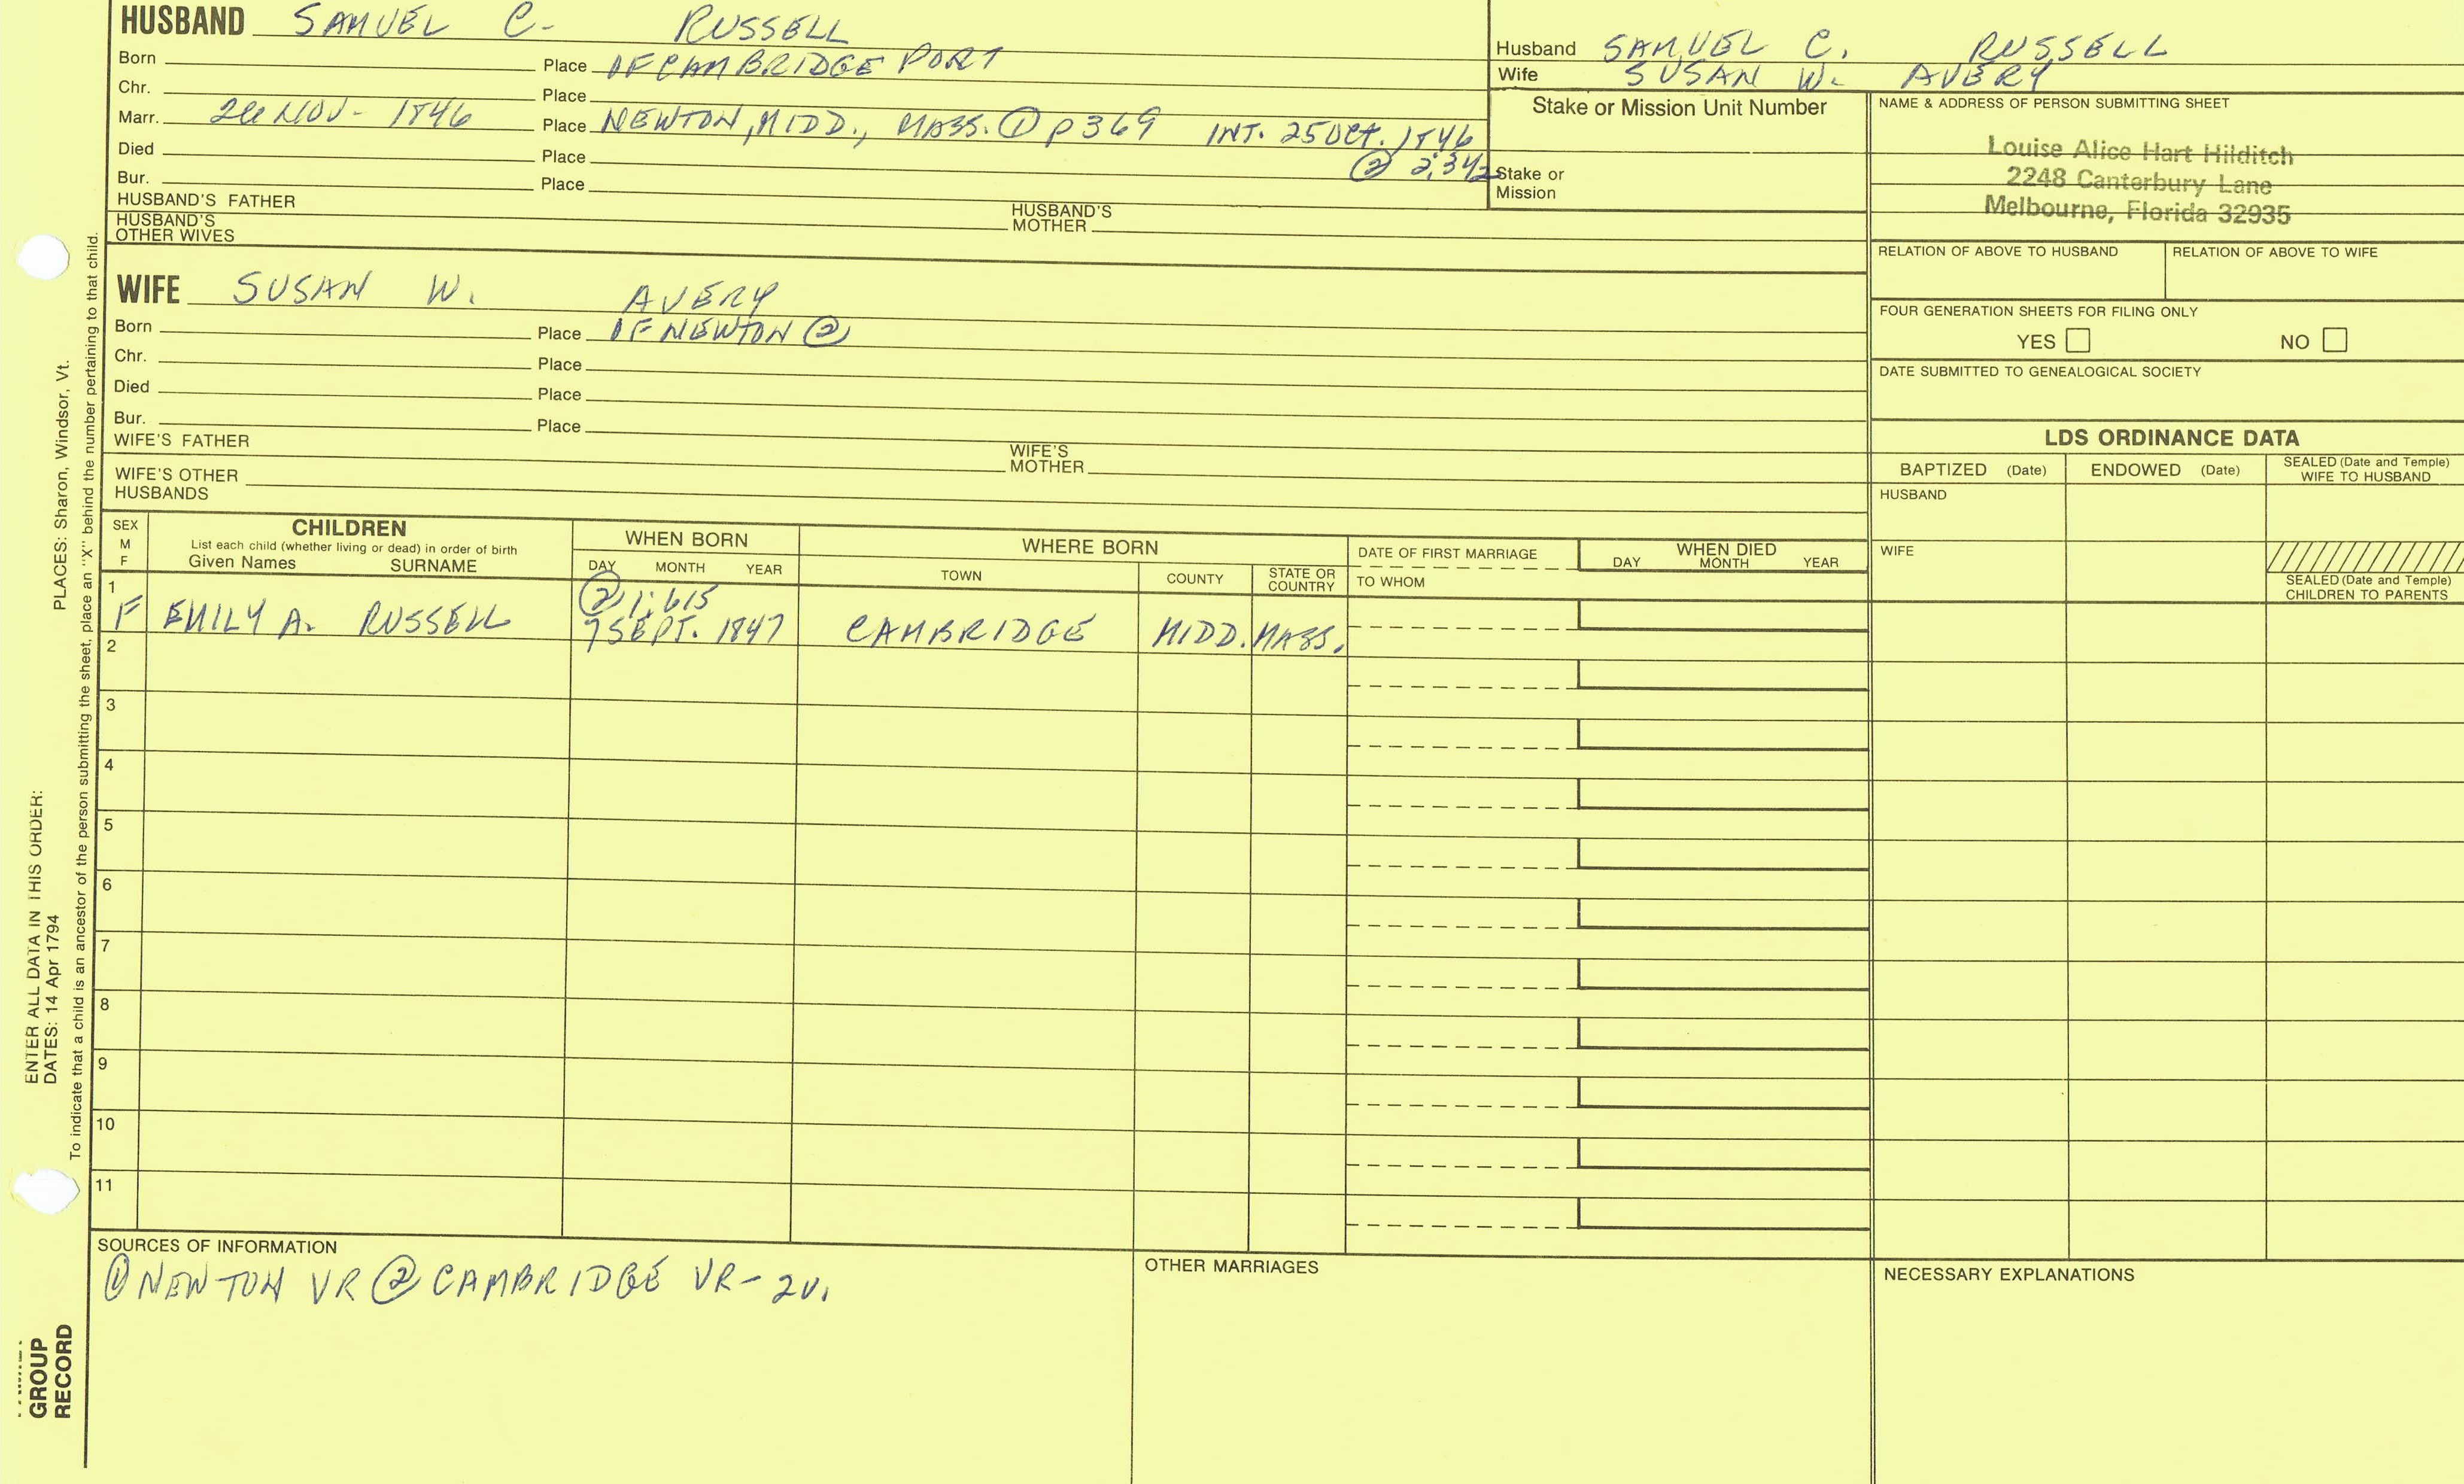 HUSBAND SAMUEL C. RUSSELL
Born Place OF CAMBRIDGE PORT
Chr. Place
Marr. NOV - 1846 Place NEWTON, MIDD., MASS. ① p 369 INT. 25 Oct. 1846
② 2:342
Died Place
Bur. Place
HUSBAND'S FATHER HUSBAND'S MOTHER
HUSBAND'S OTHER WIVES
Husband SAMUEL C. RUSSELL
Wife SUSAN W. AVERY
Stake or Mission Unit Number
Stake or Mission
NAME & ADDRESS OF PERSON SUBMITTING SHEET
Louise Alice Hart Hilditch
2248 Canterbury Lane
Melbourne, Florida 32935
RELATION OF ABOVE TO HUSBAND RELATION OF ABOVE TO WIFE
FOUR GENERATION SHEETS FOR FILING ONLY
YES NO
DATE SUBMITTED TO GENEALOGICAL SOCIETY
WIFE SUSAN W. AVERY
Born Place OF NEWTON ②
Chr. Place
Died Place
Bur. Place
WIFE'S FATHER WIFE'S MOTHER
WIFE'S OTHER HUSBANDS
LDS ORDINANCE DATA
BAPTIZED (Date) ENDOWED (Date) SEALED (Date and Temple) WIFE TO HUSBAND
HUSBAND
WIFE
SEALED (Date and Temple) CHILDREN TO PARENTS
SEX M F
CHILDREN
List each child (whether living or dead) in order of birth
Given Names SURNAME
WHEN BORN
DAY MONTH YEAR
WHERE BORN
TOWN COUNTY STATE OR COUNTRY
DATE OF FIRST MARRIAGE
TO WHOM
WHEN DIED
DAY MONTH YEAR
1
② 1:615
F EMILY A. RUSSELL 7 SEPT. 1847 CAMBRIDGE MIDD. MASS.
2
3
4
5
6
7
8
9
10
11
SOURCES OF INFORMATION
① NEWTON VR ② CAMBRIDGE VR - 2v.
OTHER MARRIAGES
NECESSARY EXPLANATIONS
ENTER ALL DATA IN THIS ORDER:
DATES: 14 Apr 1794 PLACES: Sharon, Windsor, Vt.
To indicate that a child is an ancestor of the person submitting the sheet, place an "X" behind the number pertaining to that child.
GROUP
RECORD